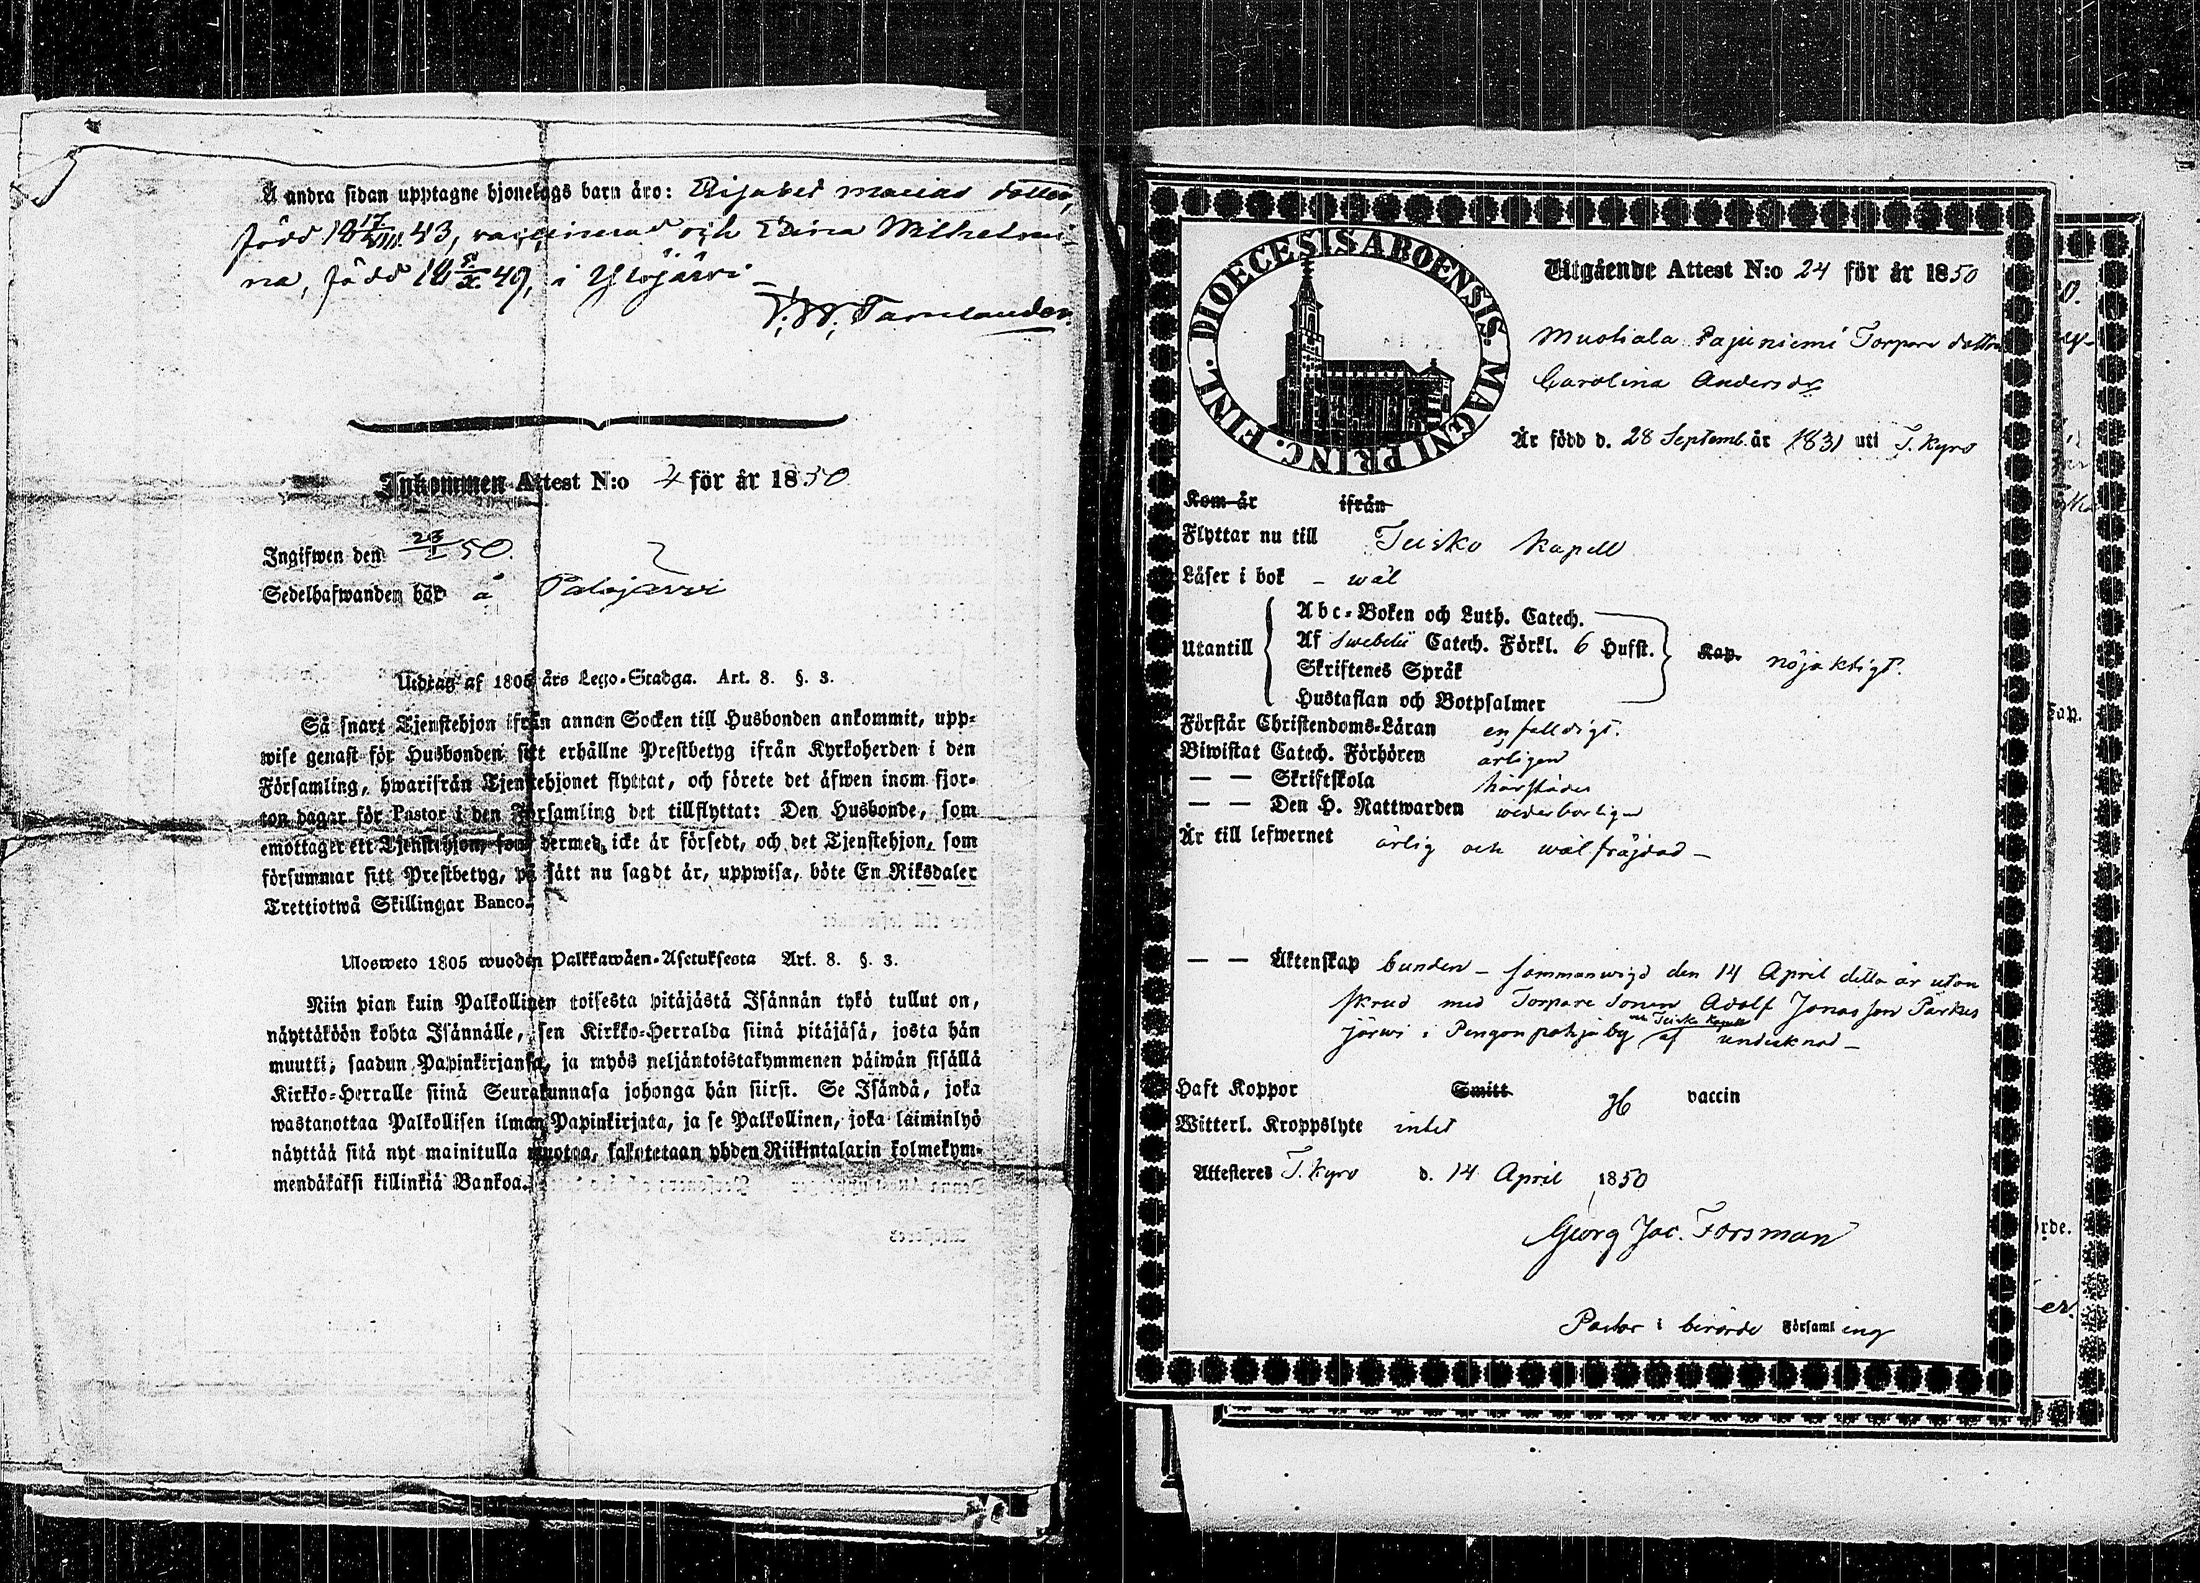 Å andra sidan upptagne hjonelags barn äro: Lisabet Maria's dotter,
född 18 17/VIII 43, vaccinerad och Edina Wilhelmi-
na, född 18 5/X 49, i Ylöjärvi
Inkommen Attest N:o 4 för år 1850
Ingifwen den 23/I 50.
Sedelhafwanden bör å Palojärvi
Utdrag af 1805 års Lego-Stadga. Art. 8. §. 3.
Så snart Tjenstehjon ifrån annan Socken till Husbonden ankommit, upp-
wise genast för Husbonden sitt erhållne Prestbetyg ifrån Kyrkoherden i den
Församling, hwarifrån Tjenstehjonet flyttat, och förete det äfwen inom fjor-
ton dagar för Pastor i den Församling det tillflyttat: Den Husbonde, som
emottager ett Tjenstehjon, som dermed icke är försedt, och det Tjenstehjon, som
försummar sitt Prestbetyg, på sätt nu sagdt är, uppwisa, böte En Riksdaler
Trettiotwå Skillingar Banco.
Ulosweto 1805 wuoden Palkkawäen-Asetuksesta Art. 8. §. 3.
Niin pian kuin Palkollinen toisesta pitäjästä Isännän tykö tullut on,
näyttäköön kohta Isännälle, sen Kirkko-Herralda siinä pitäjäsä, josta hän
muutti, saadun Papinkirjansa, ja myös neljäntoistakymmenen päiwän sisällä
Kirkko-Herralle siinä Seurakunnasa johonga hän siirsi. Se Isändä, joka
wastanottaa Palkollisen ilman Papinkirjata, ja se Palkollinen, joka laiminlyö
näyttää sitä nyt mainitulla muotoa, sakotetaan yhden Riikintalarin kolmekym-
mendäkaksi killinkiä Bankoa.
DIOECESIS ABOENSIS. MAGNI PRINC. FINL.
Utgående Attest N:o 24 för år 1850
Muotiala Pajuniemi Torpare dottren
Carolina Andersdr
Är född d. 28 Septemb. år 1831 uti T. Kyro
Kom år ifrån
Flyttar nu till Teisko Kapell
Läser i bok – wäl
Abc-Boken och Luth. Catech.
Utantill Af Swebelii Catech. Förkl. 6 Hufst. Kap. nöjaktigt.
Skriftenes Språk
Hustaflan och Botpsalmer
Förstår Christendoms-Läran enfalldigt.
Biwistat Catech. Förhören årligen
— — Skriftskola härstädes
— — Den H. Nattwarden wederbörligen
Är till lefwernet ärlig och wälfräjdad –
— — Äktenskap bunden – sammanwigd den 14 April detta år utan
skrud med Torpare Sonen Adolf Jonasson Parkus
järwi i Pengonpohja by och Teisko Kapell af undecknad –
Haft Koppor Smitt H vaccin
Witterl. Kroppslyte intet
Attesteres T. Kyro d. 14 April 1850
Georg Jac. Forsman
Pastor i berörde Församling